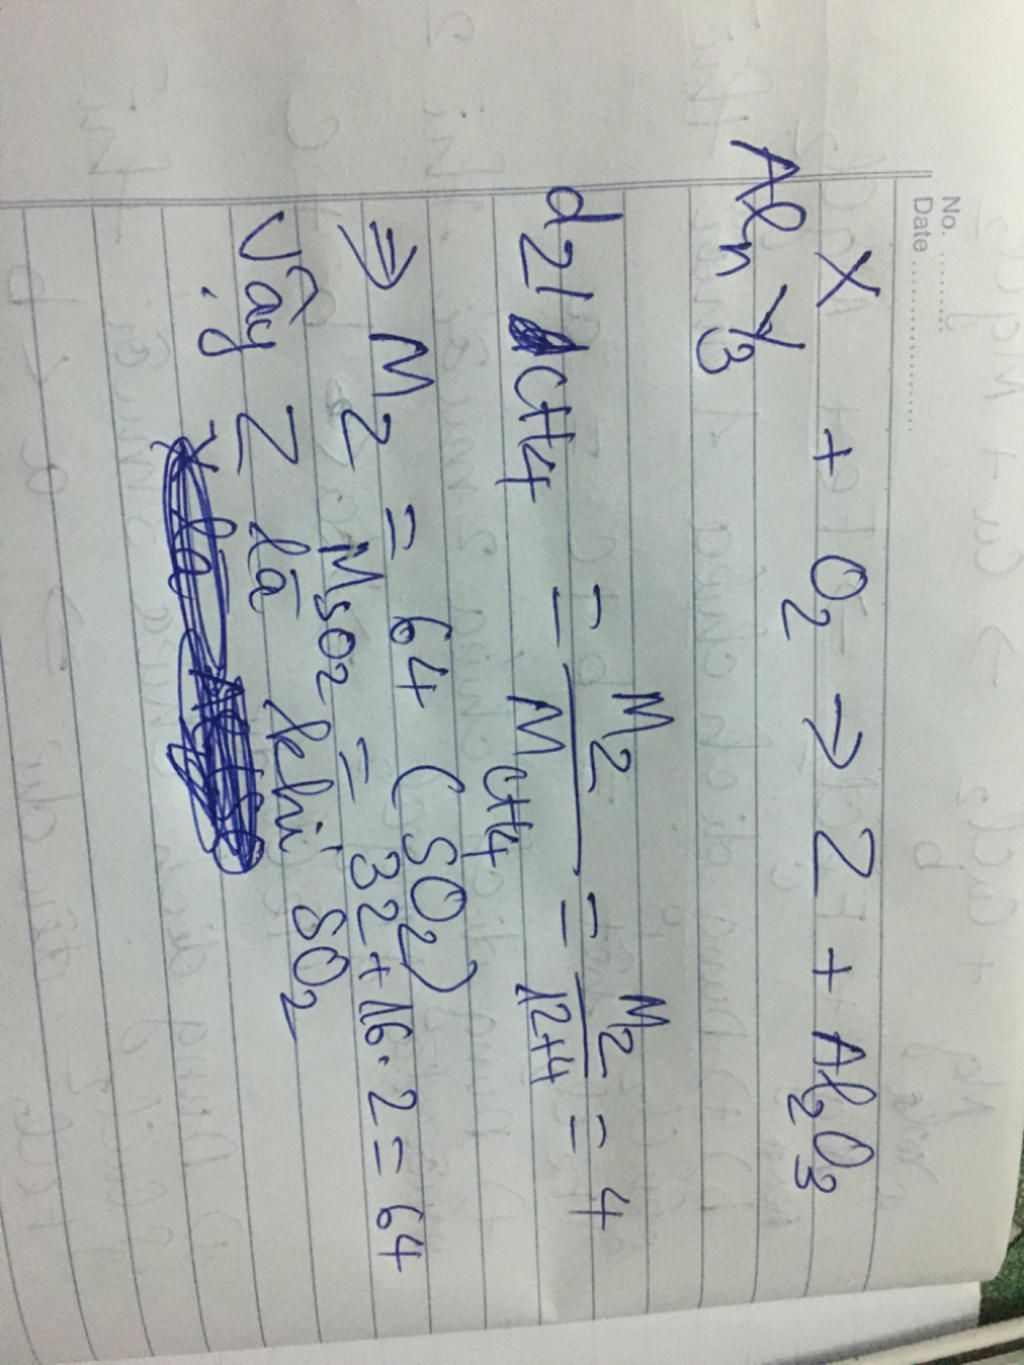 No. ...........
Date ..........................
X + O2 → Z + Al2O3
Aln Y3
dZ/CH4 = MZ/MCH4 = MZ/12+4 = 4
⇒ MZ = 64 (SO2)
MSO2 = 32+16.2 = 64
Vậy Z là khí SO2